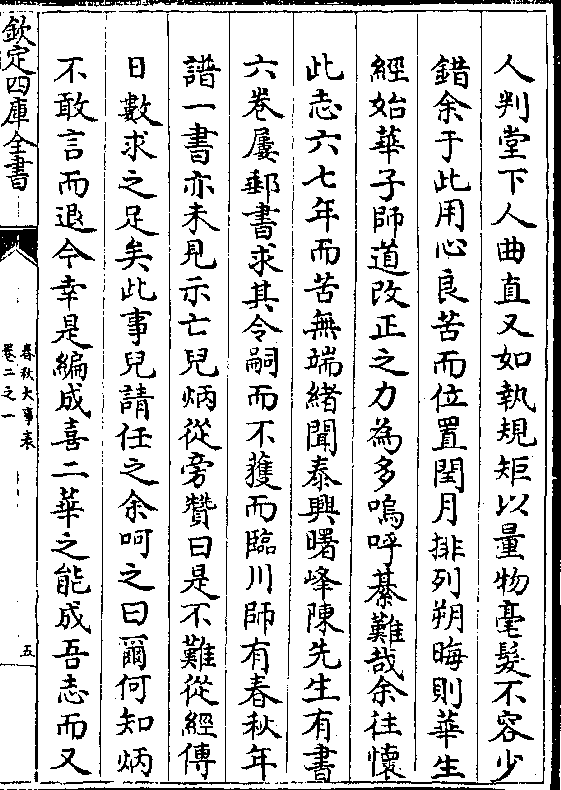 人判堂下人曲直又如執規矩以量物毫髮不容少
錯余于此用心良苦而位置閏月排列朔晦則華生
經始華子師道改正之力為多嗚呼綦難哉余往懷
此志六七年而苦無端緒聞泰興曙峰陳先生有書
六卷屢郵書求其令嗣而不獲而臨川師有春秋年
譜一書亦未見示亡兒炳從旁贊曰是不難從經傳
日數求之足矣此事兒請任之余呵之曰爾何知炳
不敢言而退今幸是編成喜二華之能成吾志而又
欽定四庫全書
春秋大事表
卷二之一
五